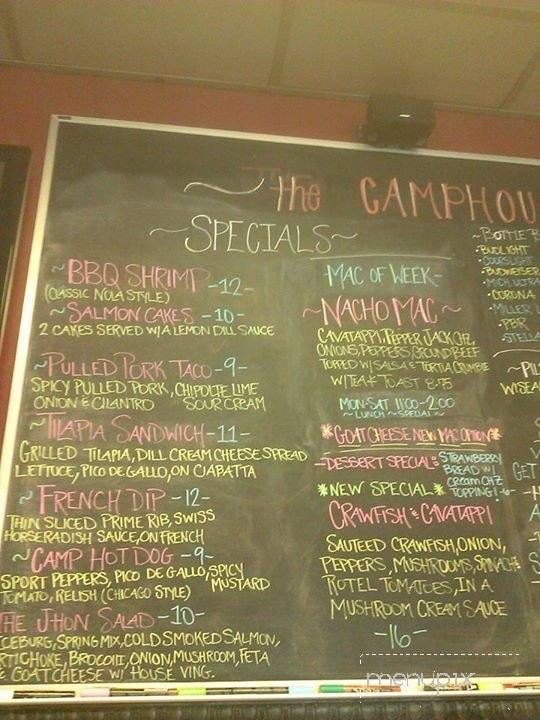 the CAMPHOU
~SPECIALS~
~BBQ SHRIMP -12-
(CLASSIC NOLA STYLE)
~SALMON CAKES -10-
2 CAKES SERVED W/A LEMON DILL SAUCE
~PULLED PORK TACO -9-
SPICY PULLED PORK, CHIPOLTE LIME
ONION & CILANTRO SOUR CREAM
~TILAPIA SANDWICH -11-
GRILLED TILAPIA, DILL CREAM CHEESE SPREAD
LETTUCE, PICO DE GALLO, ON CIABATTA
~FRENCH DIP -12-
THIN SLICED PRIME RIB, SWISS
HORSERADISH SAUCE, ON FRENCH
~CAMP HOT DOG -9-
SPORT PEPPERS, PICO DE GALLO, SPICY MUSTARD
TOMATO, RELISH (CHICAGO STYLE)
THE JHON SALAD -10-
ICEBURG, SPRING MIX, COLD SMOKED SALMON,
ARTICHOKE, BROCOIII, ONION, MUSHROOM, FETA
& GOAT CHEESE W/ HOUSE VING.
MAC OF WEEK-
~NACHO MAC~
CAVATAPPI, PEPPER JACK CHZ,
ONIONS, PEPPERS, GROUND BEEF
TOPPED W/ SALSA & TORTIA CRUMBLE
W/TEA & TOAST 8.95
MON-SAT 11:00-2:00
~LUNCH~SPECIAL~
*GOAT CHEESE NEW MAC OPTION*
-DESSERT SPECIAL: STRAWBERRY
BREAD W/
CREAM CHZ
TOPPING!
*NEW SPECIAL*
CRAWFISH & CAVATAPPI
SAUTEED CRAWFISH, ONION,
PEPPERS, MUSHROOMS, SPINACH
ROTEL TOMATOES, IN A
MUSHROOM CREAM SAUCE
-16-
~BOTTLE
BUDLIGHT
COORSLIGHT
BUDWEISER
MICH ULTRA
CORONA
MILLER
PBR
STELLA
GET
menupix